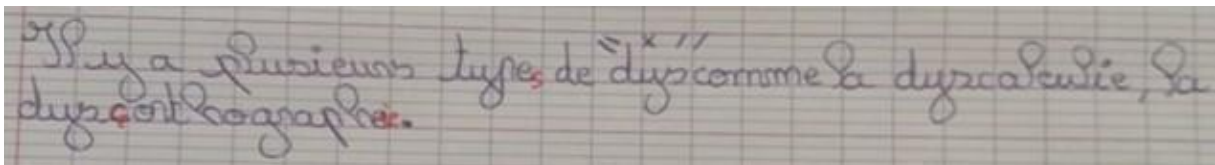 Il y a plusieurs types de "dys" comme la dyscalculie, la
dysorthographie.